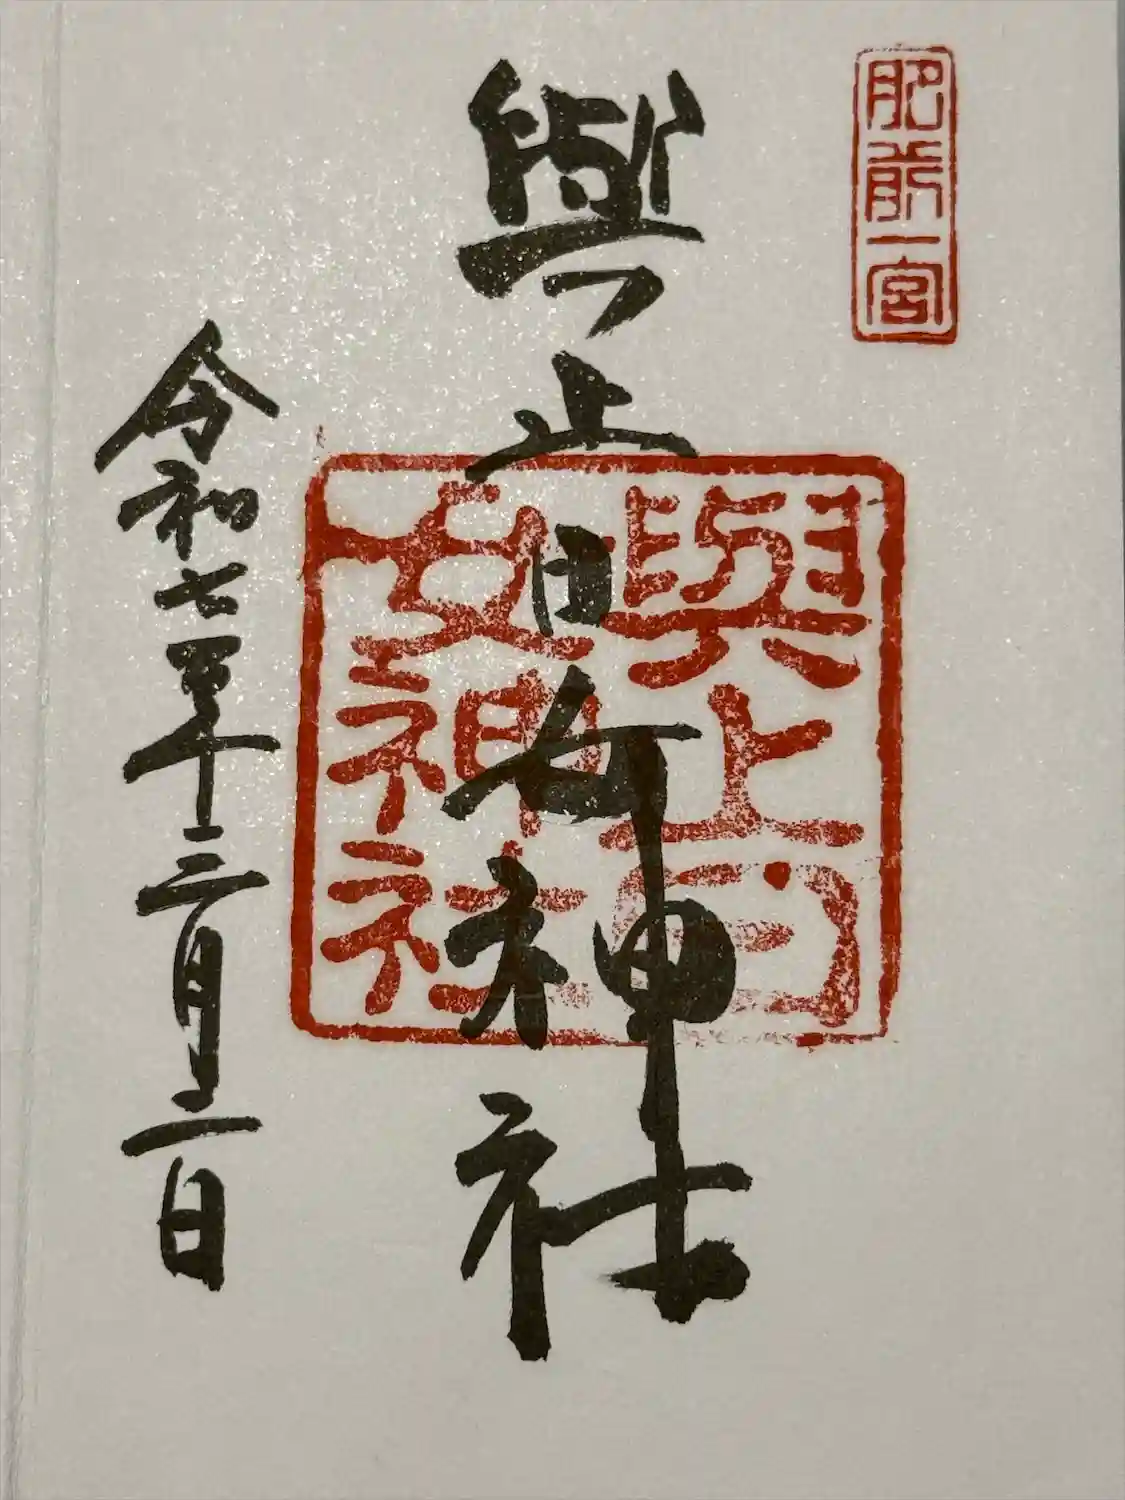 肥前一宮
與止日女神社
與止日女神社
令和七年三月二日